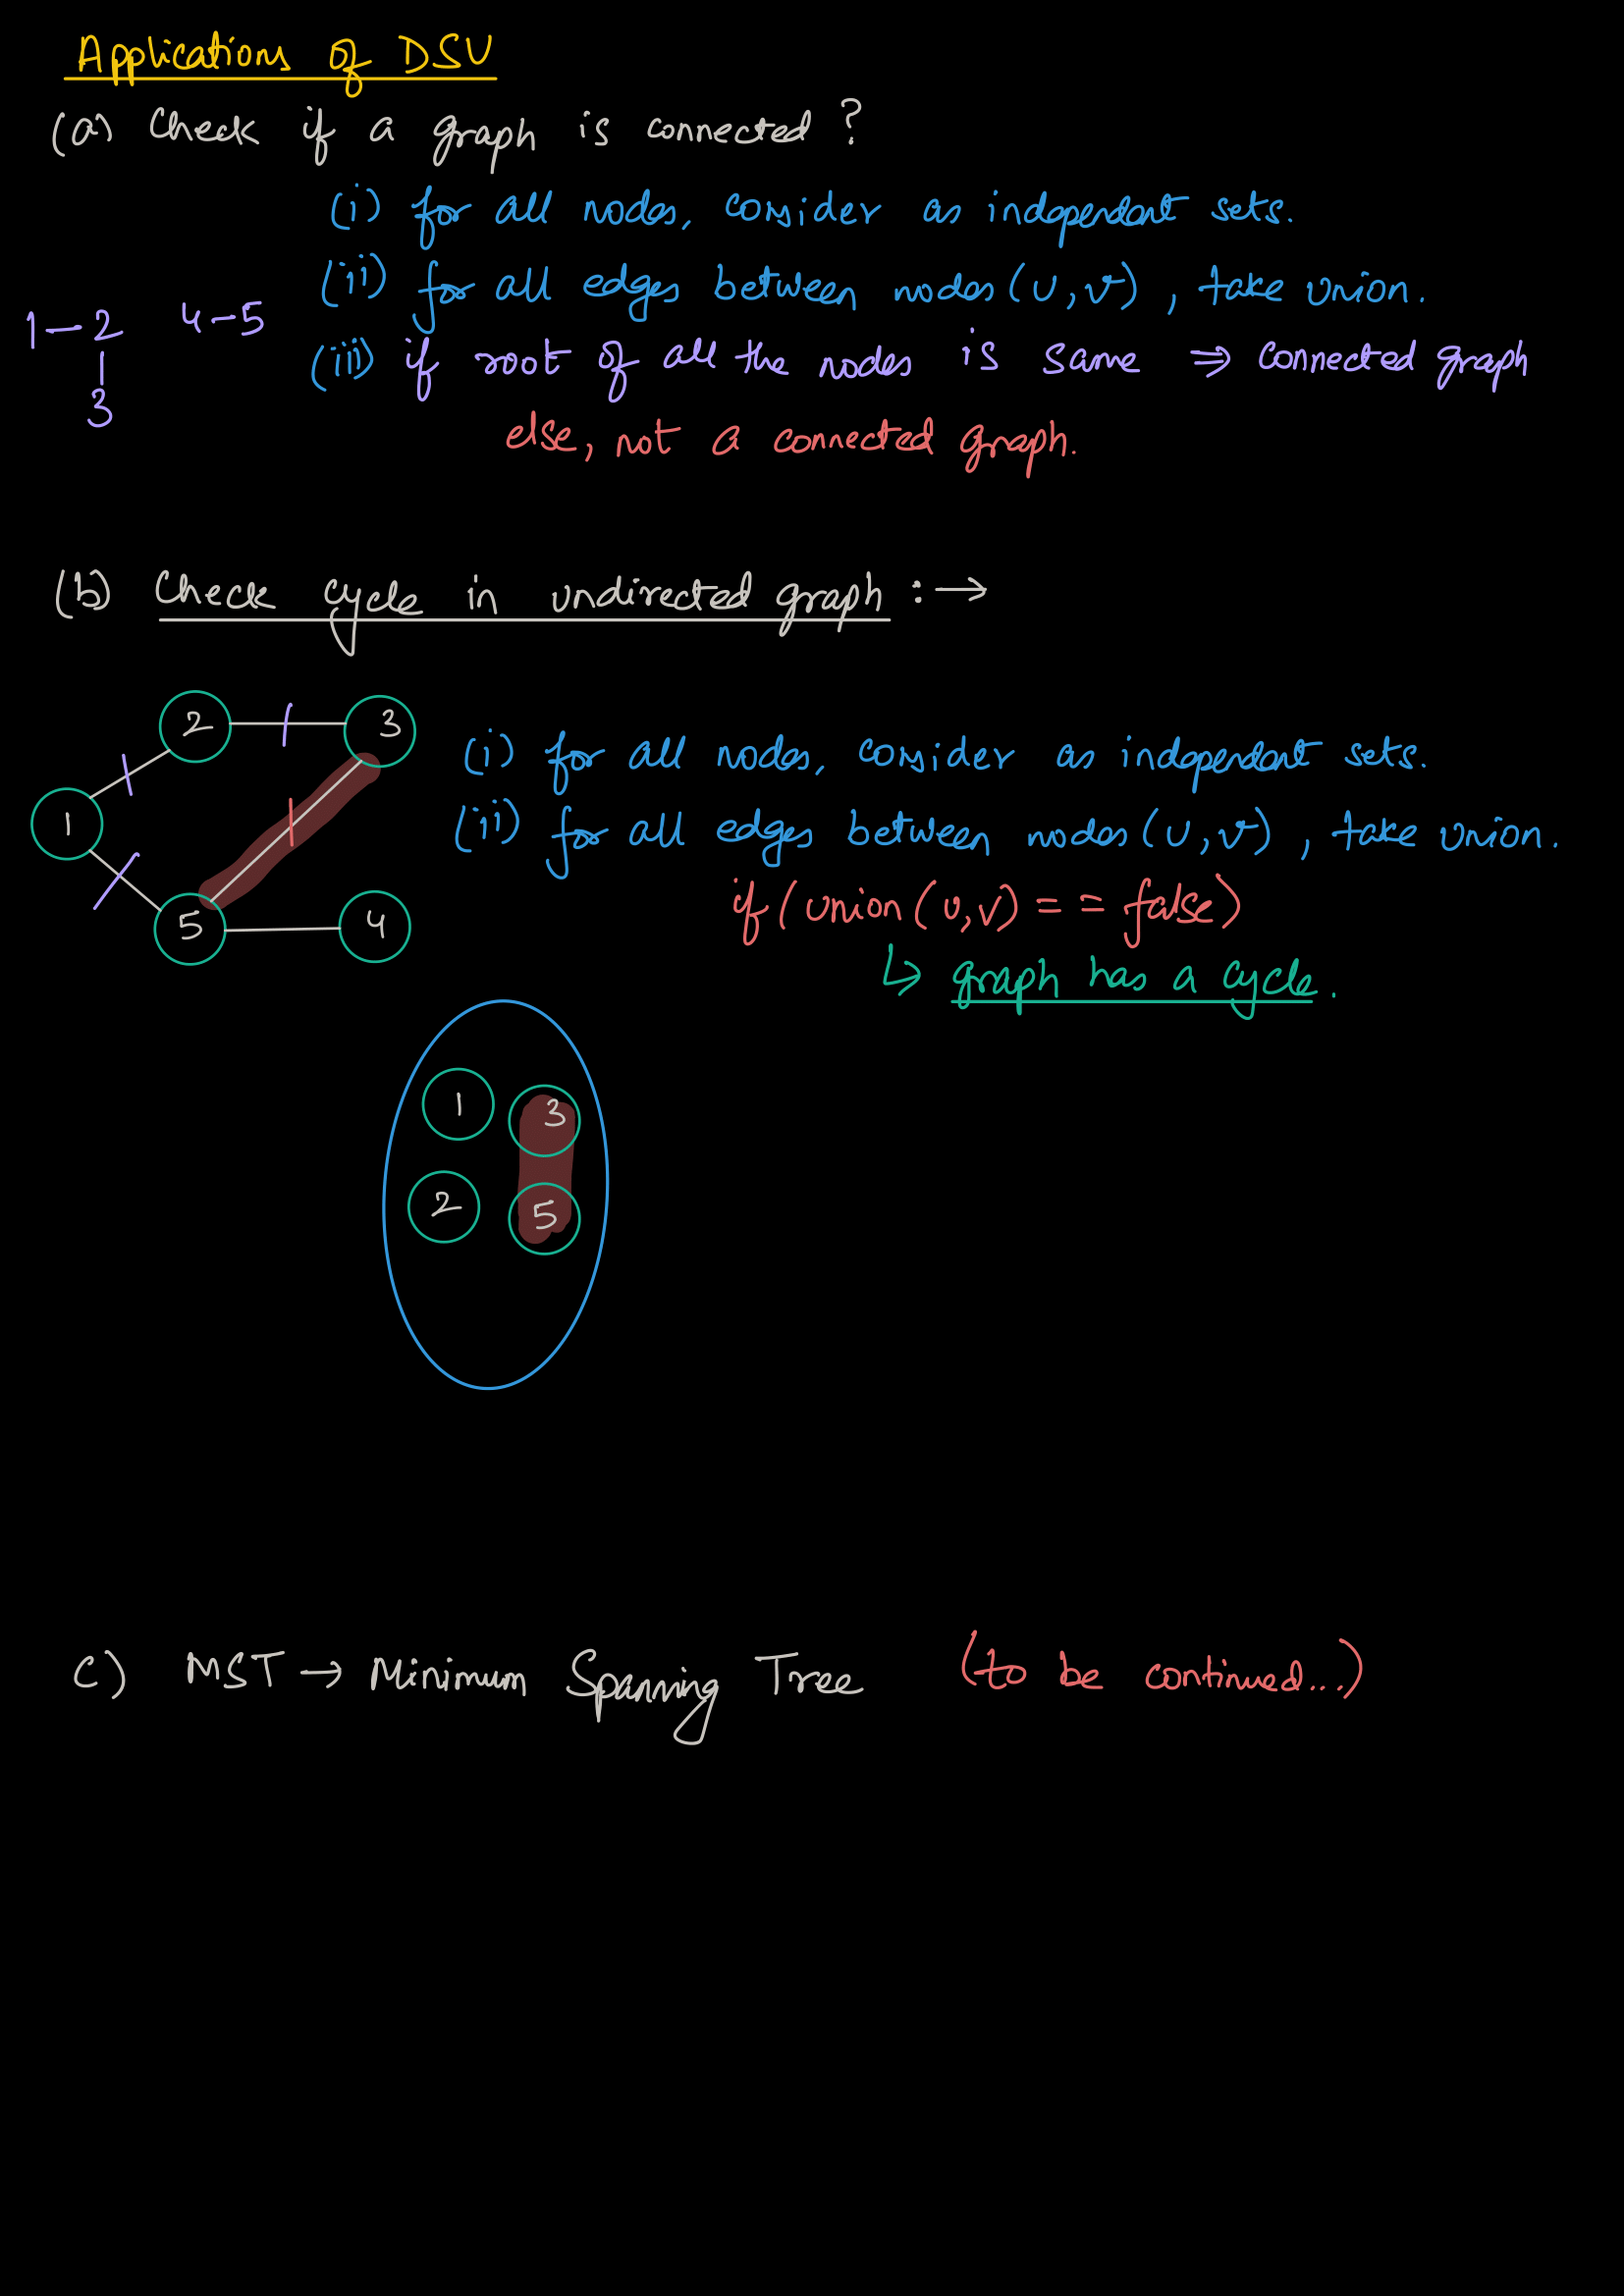 Applications of DSU
(a) Check if a graph is connected ?
(i) for all nodes, consider as independent sets.
(ii) for all edges between nodes (u,v) , take union.
1-2 4-5
3
(iii) if root of all the nodes is same ⇒ connected graph
else, not a connected graph.
(b) Check cycle in undirected graph :→
2 3
1
5 4
(i) for all nodes, consider as independent sets.
(ii) for all edges between nodes (u,v) , take union.
if (union (u,v) == false)
↳ graph has a cycle.
1 3
2 5
c) MST → Minimum Spanning Tree (to be continued...)